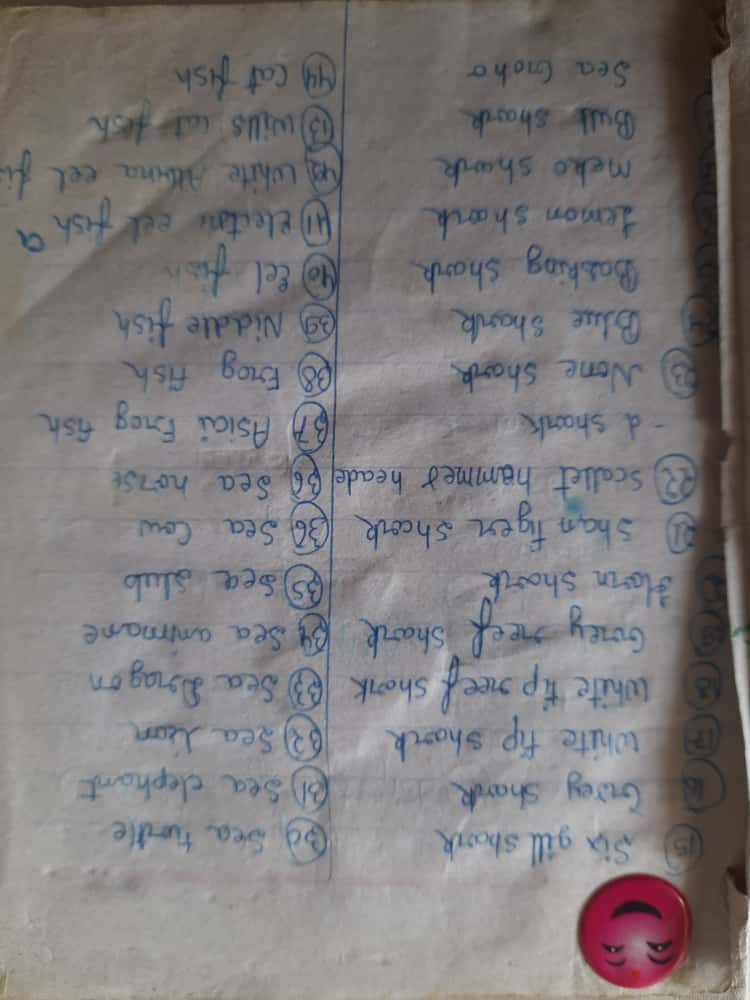 15 Six gill shark
16 Grey shark
17 White tip shark
18 White tip reef shark
Grey reef shark
Horn shark
21 Shan tiger shark
22 Scallet hammer heade
- d shark
23 None shark
Blue shark
Basking shark
Lemon shark
Meko shark
Bull shark
Sea Goho
30 Sea turtle
31 Sea elephant
32 Sea Leon
33 Sea Dragon
34 Sea animane
35 Sea slub
36 Sea Cow
36 Sea horse
37 Asici Frog fish
38 Frog fish
39 Niddle fish
40 Eel fish
41 Electric eel fish
42 White eel
43 Wills cat fish
44 Cat fish